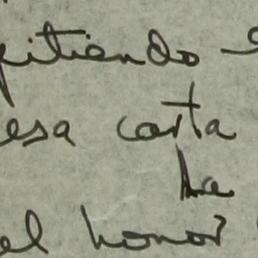 pitiendo
esa carta
ha
el honor